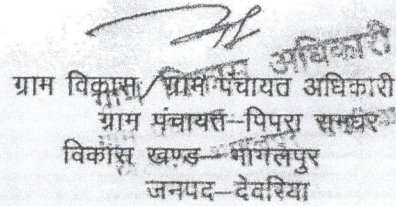 ग्राम विकास/ग्राम पंचायत अधिकारी
ग्राम पंचायत–पिपरा
विकास खण्ड–भागलपुर
जनपद–देवरिया